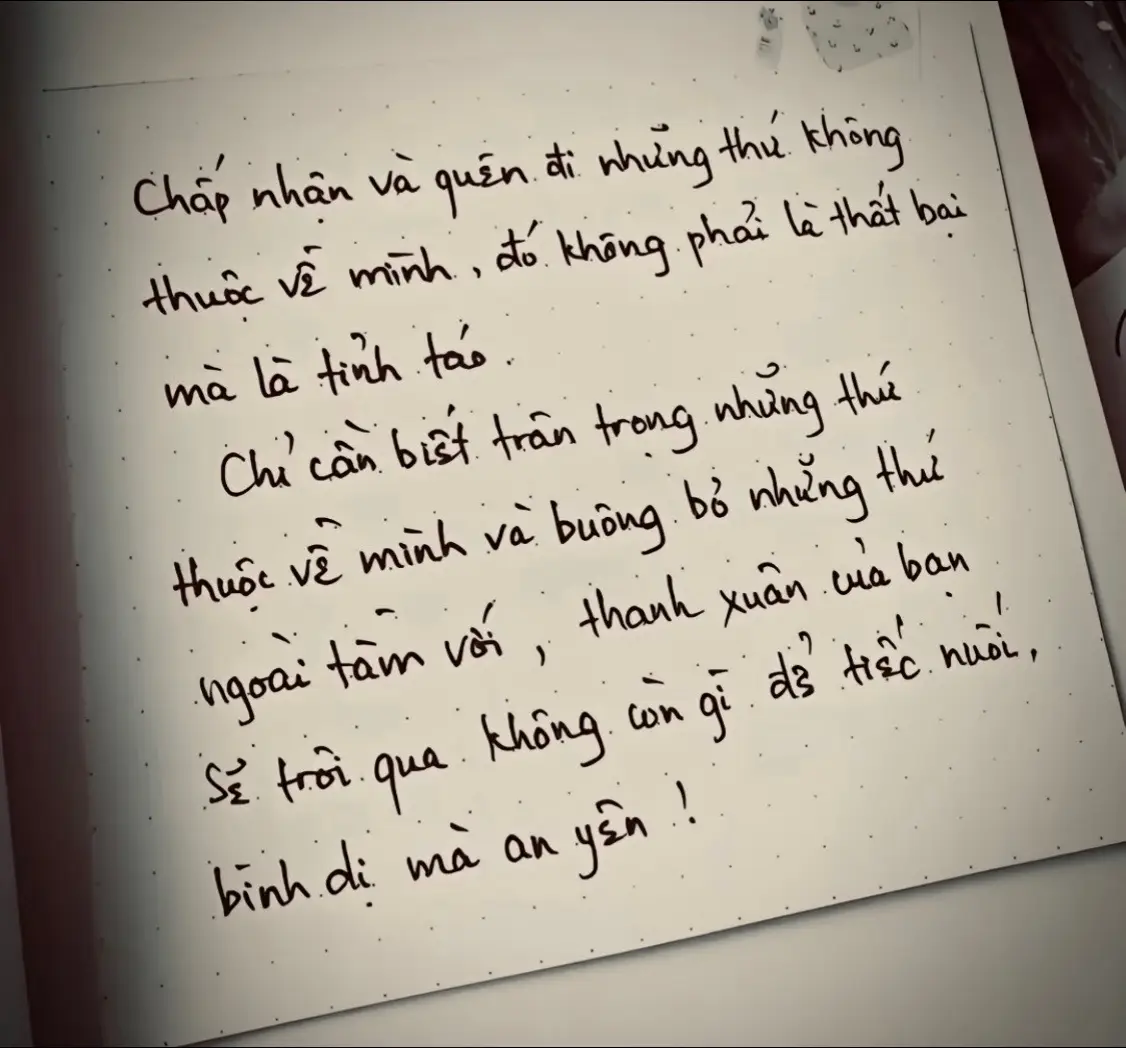 Chấp nhận và quên đi những thứ không
thuộc về mình, đó không phải là thất bại
mà là tỉnh táo.
Chỉ cần biết trân trọng những thứ
thuộc về mình và buông bỏ những thứ
ngoài tầm với, thanh xuân của bạn
sẽ trôi qua không còn gì để tiếc nuối,
bình dị mà an yên!